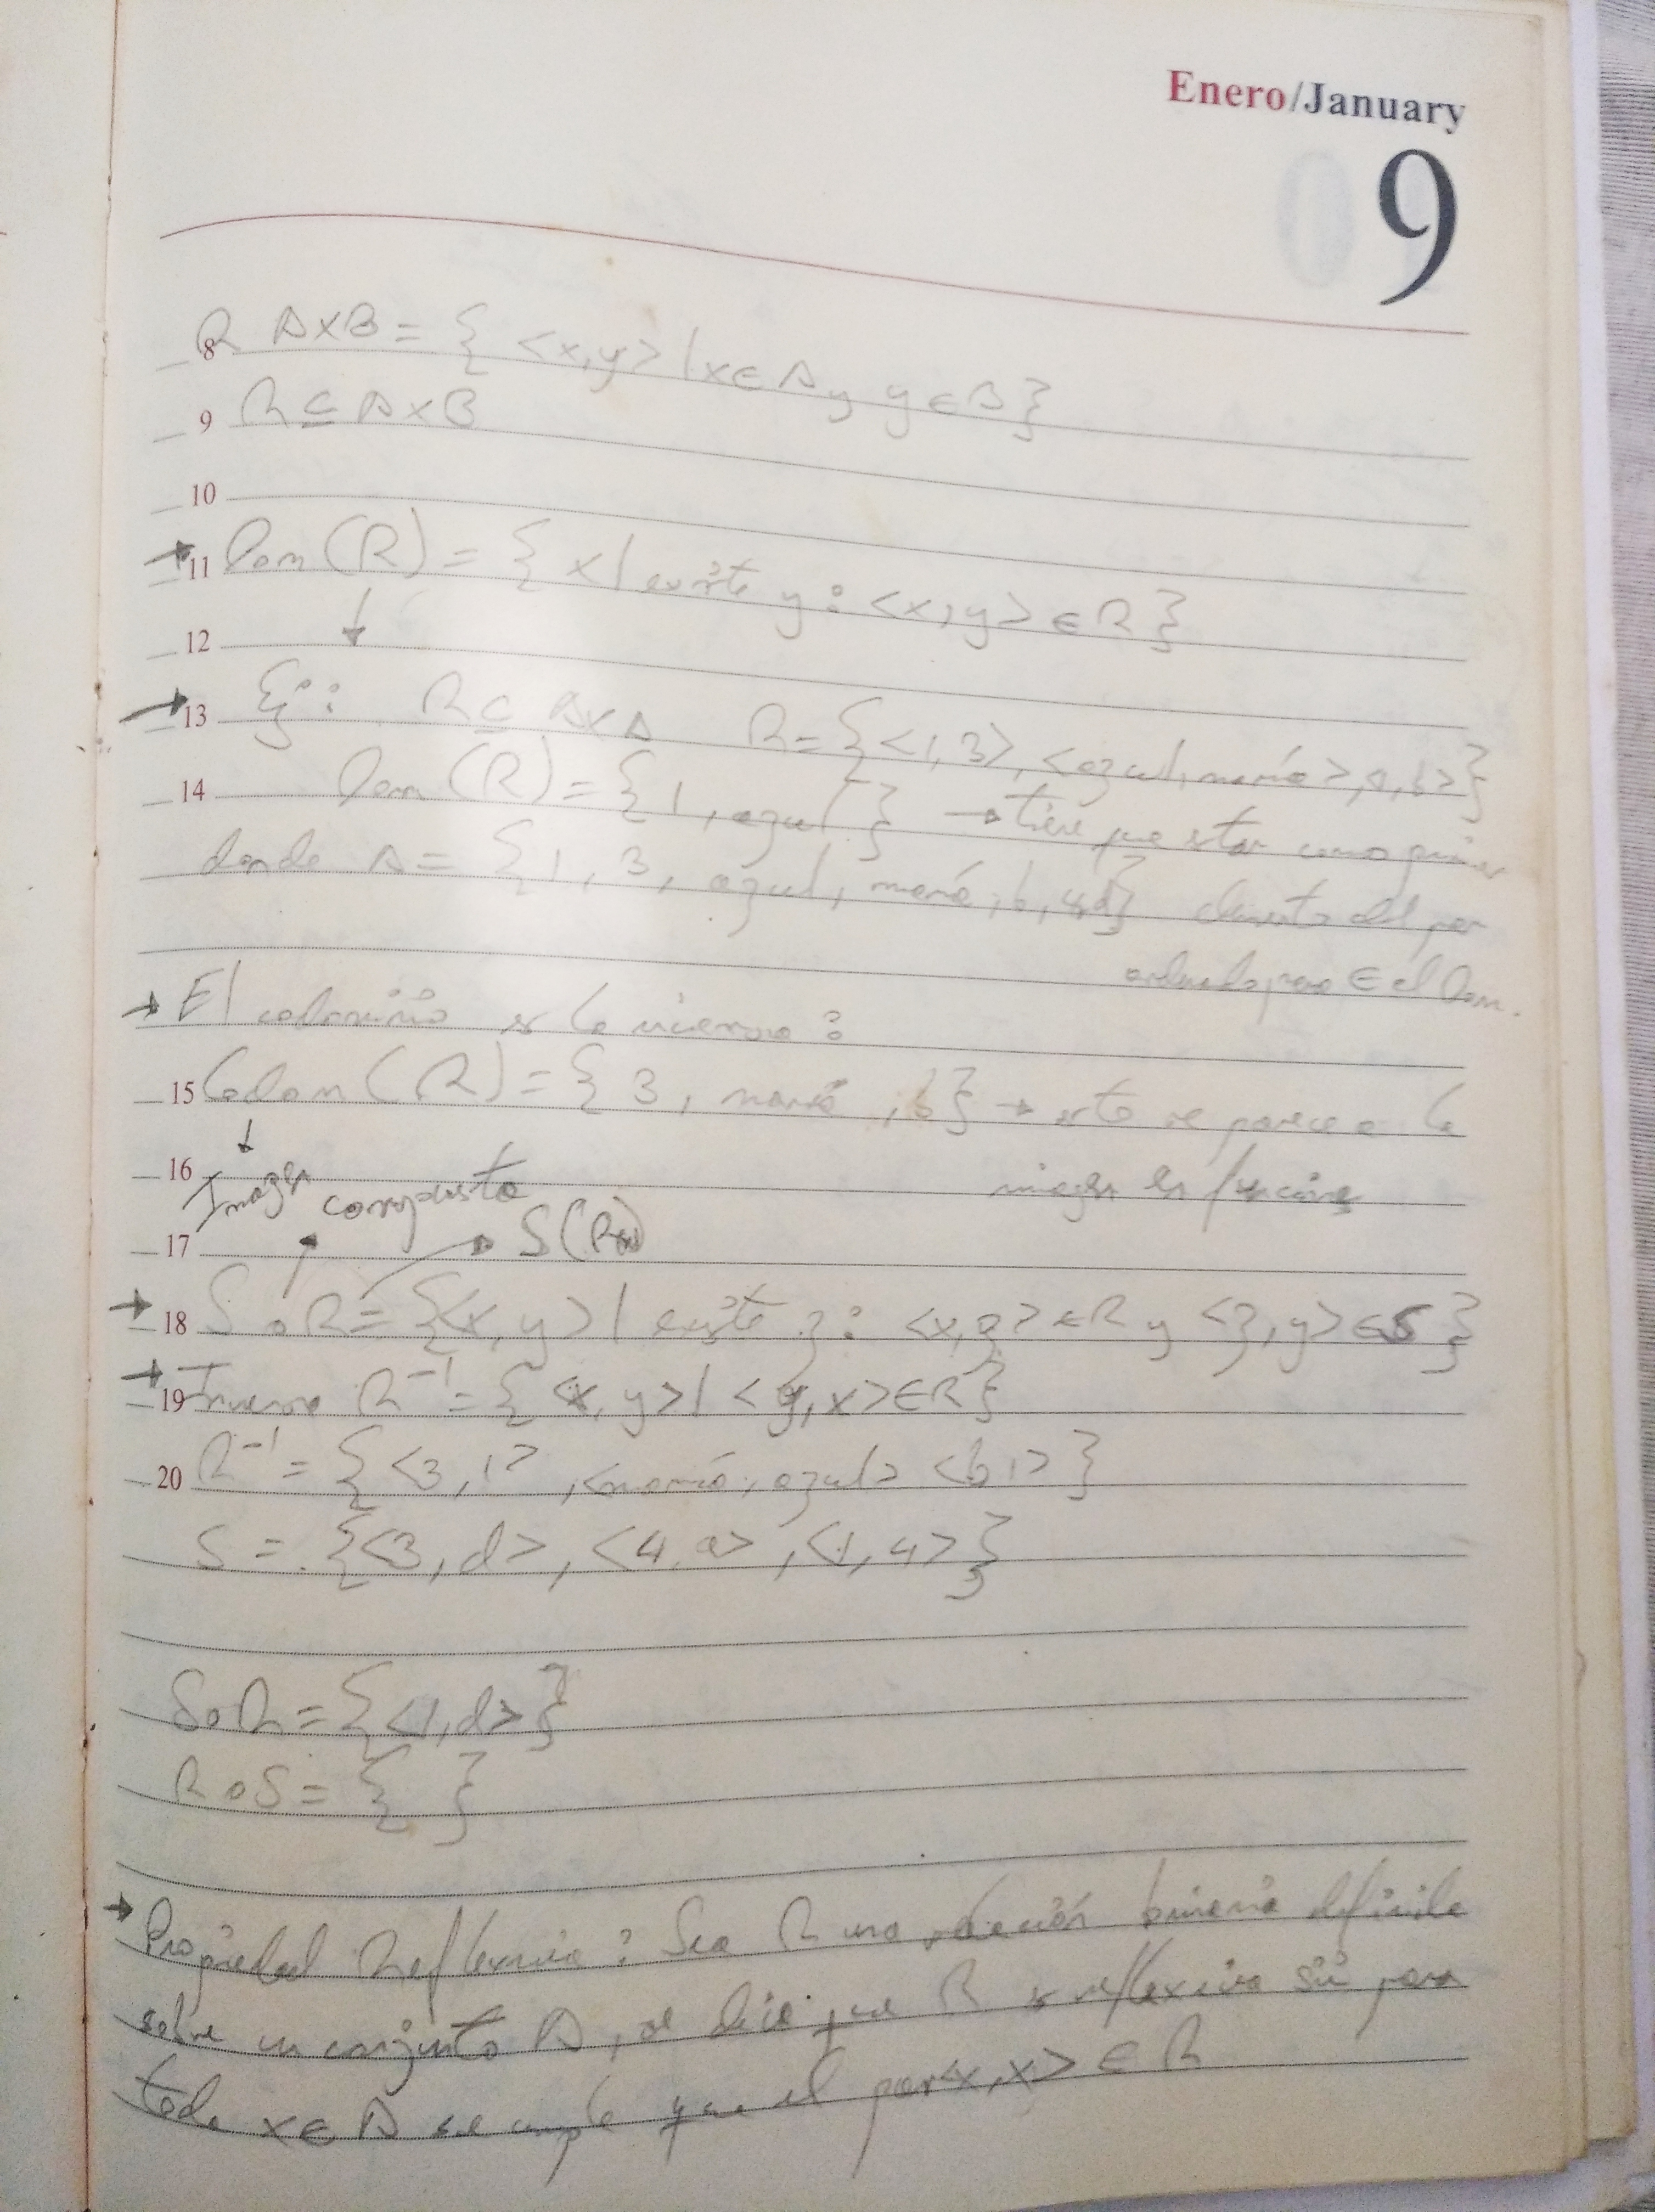 Enero/January
09
8 R AxB = { <x,y> | x ∈ A y y ∈ B }
9 R ⊆ A x B
10
→ 11 Dom (R) = { x | existe y : <x,y> ∈ R }
12 ↓
→ 13 Ej: R ⊆ A x A R = { <1,3>, <azul, mamá>, <1,b> }
14 Dom (R) = { 1, azul } → tiene que estar como primer
donde A = { 1, 3, azul, mamá, b, 4, d } elemento del par
ordenado para ∈ al Dom.
→ El codominio es la inversa :
15 Codom (R) = { 3, mamá, b } → esto se parece a la
16 ↓ Imagen imagen en funciones
compuesta
17 → S(R(x))
→ 18 S o R = { <x,y> | existe z : <x,z> ∈ R y <z,y> ∈ S }
→ 19 Inversa R⁻¹ = { <x,y> | <y,x> ∈ R }
20 R⁻¹ = { <3,1>, <mamá, azul> <b,1> }
S = { <3,d>, <4,a>, <1,4> }
S o R = { <1,d> }
R o S = { }
→ Propiedad Reflexiva : Sea R una relación binaria definida
sobre un conjunto A, se dice que R es reflexiva sii para
todo x ∈ A se cumple que el par <x,x> ∈ R